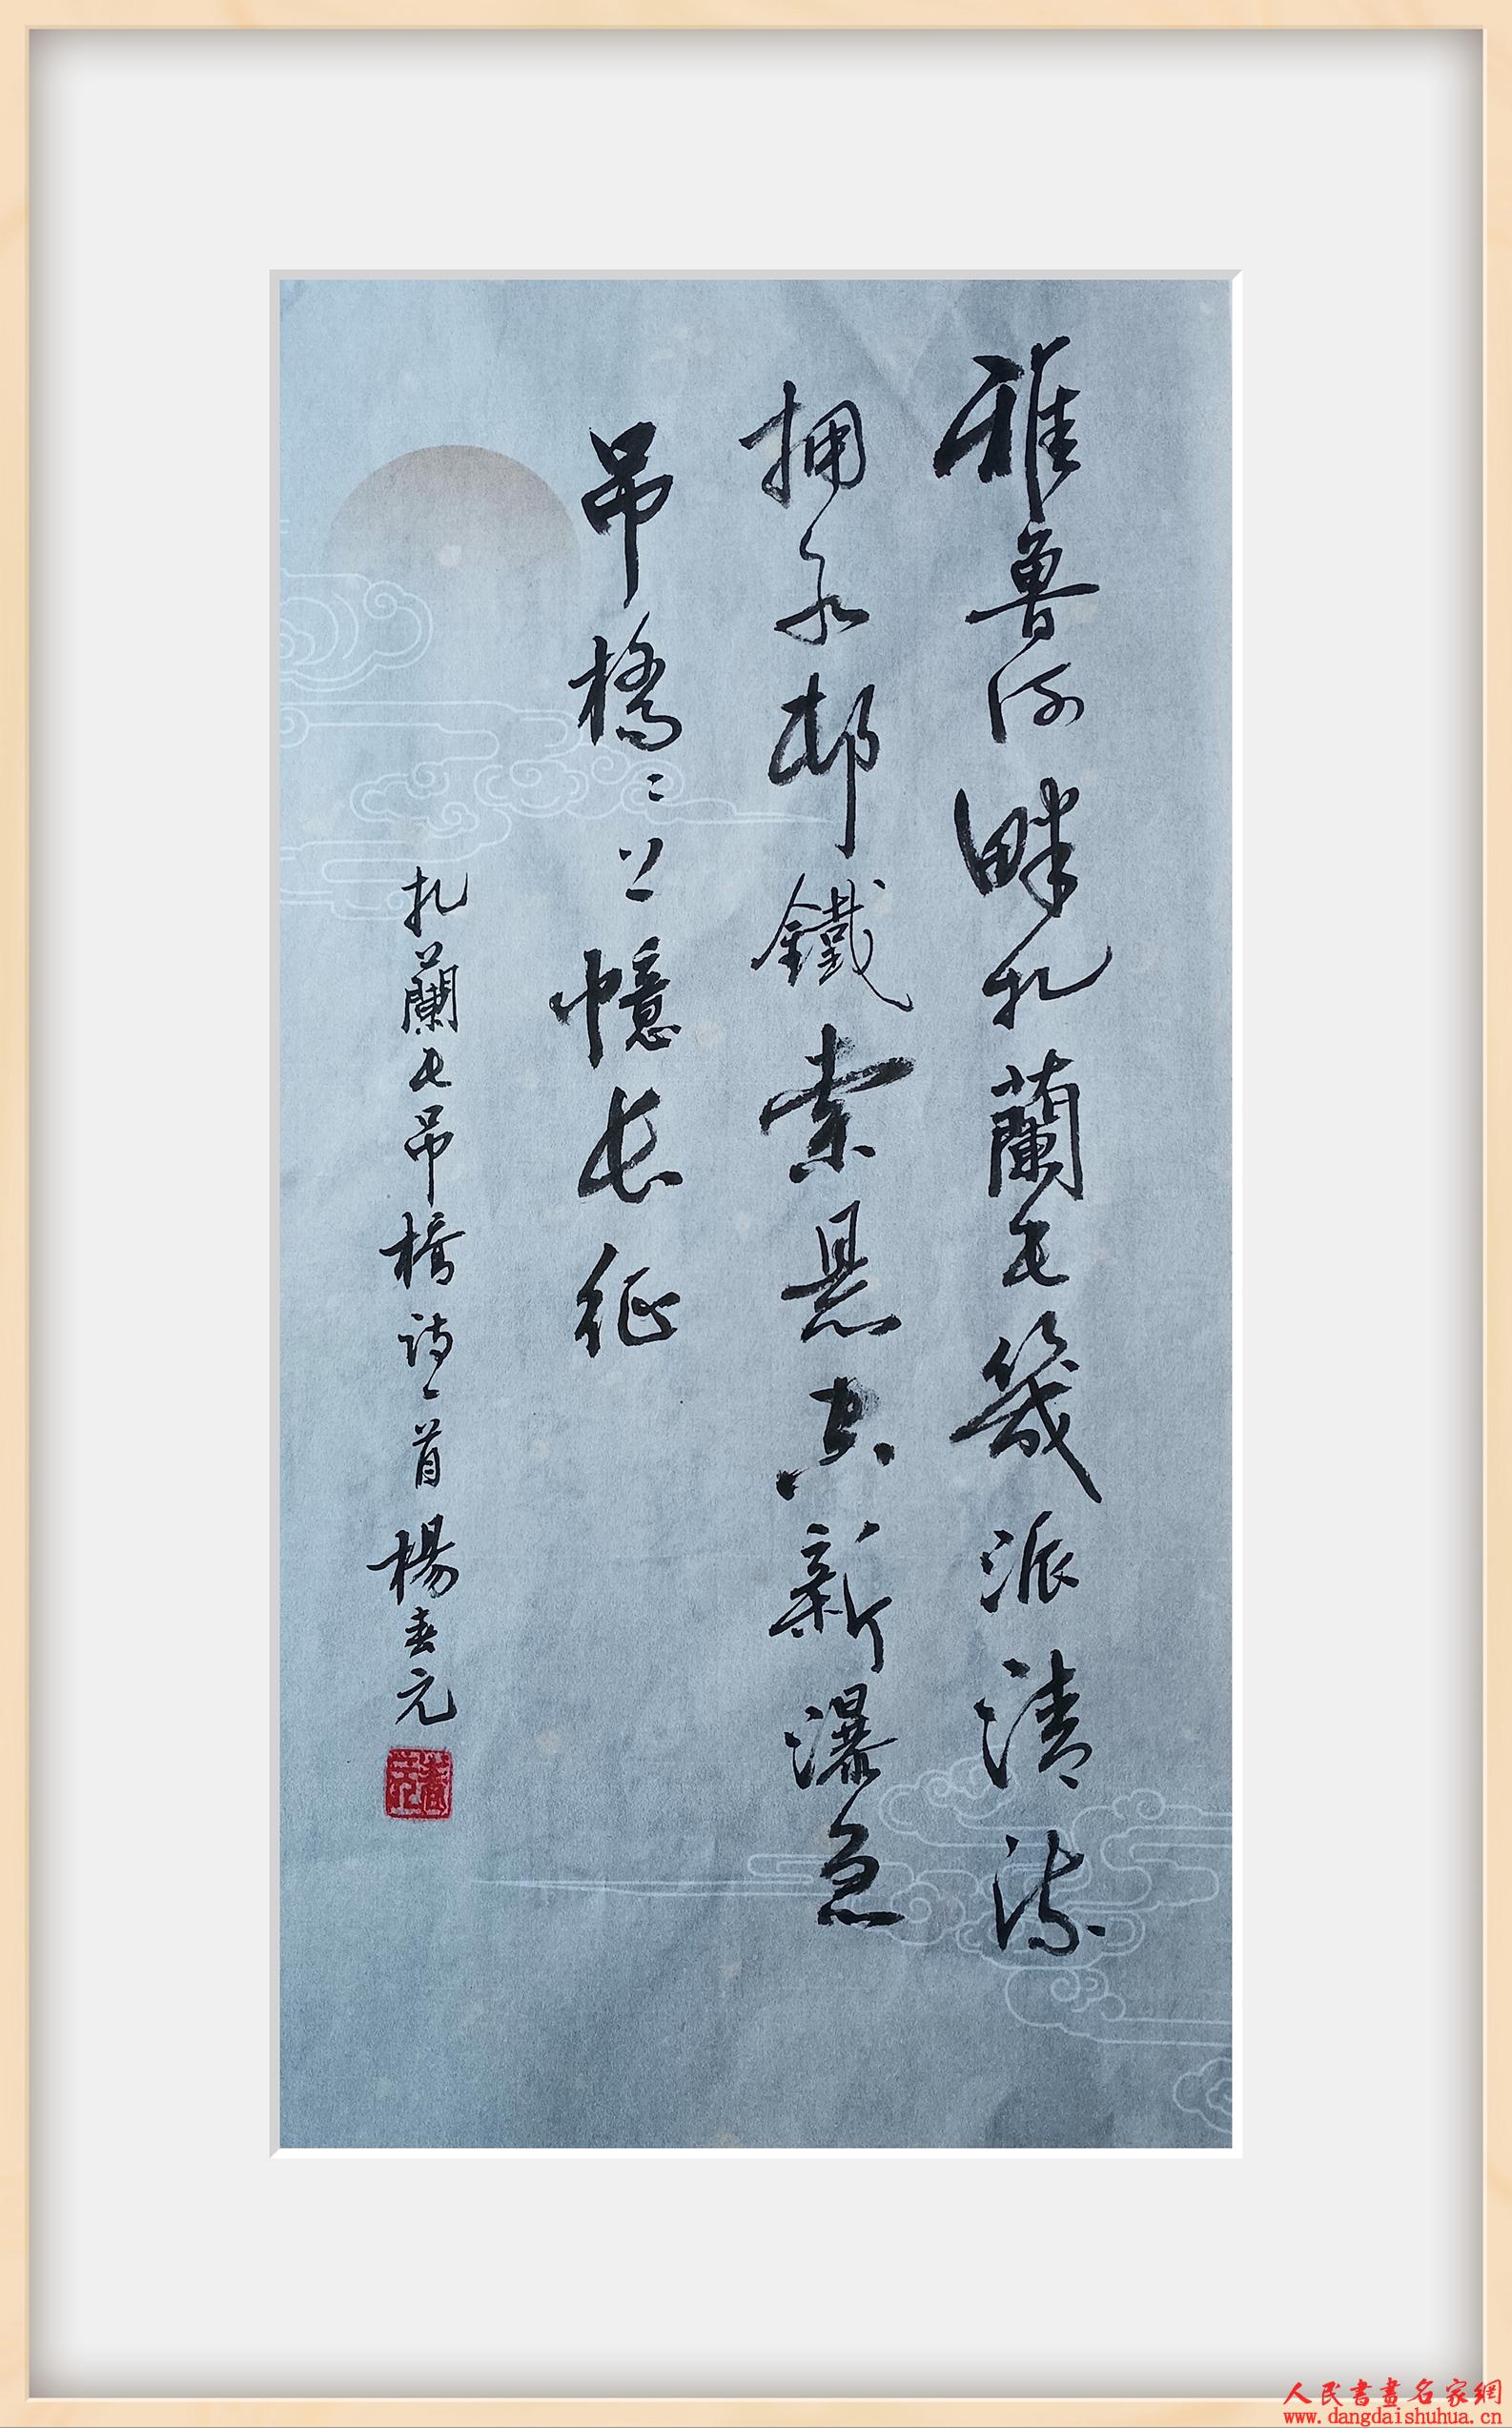 雅鲁河畔扎蘭屯幾派清流
拥永邨鐵索悬空新瀑急
吊橋橋上憶长征
扎蘭屯吊橋诗一首 楊春元
春元
人民書畫名家網
www.dangdaishuhua.cn